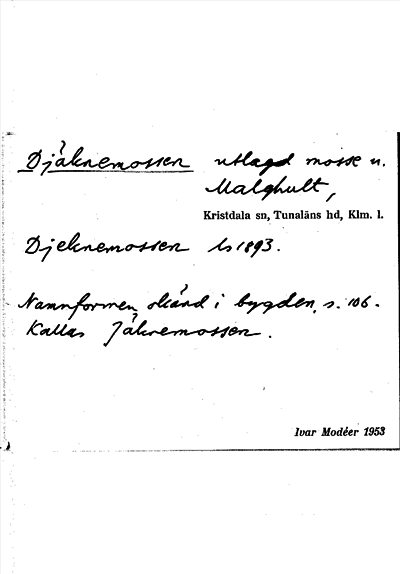 Djäknemossen utlagd mosse u.
Malghult,
Kristdala sn, Tunaläns hd, Klm. l.
Djeknemossen Ls 1893.
Namnformen okänd i bygden, s. 106.
Kallas Jäknemossen.
Ivar Modéer 1953